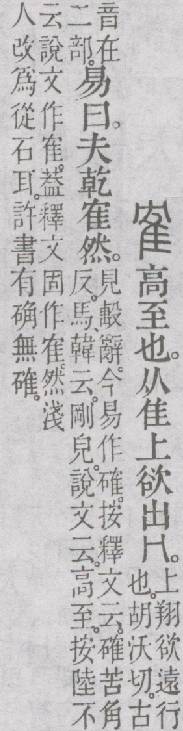 隺高至也。从隹上欲出冂。上翔欲遠行
也。胡沃切。古
音在
二部。易曰。夫乾隺然。見毄辭。今易作確。按釋文云。確苦角
反。馬韓云。剛皃。說文云。高至。按陸不
云說文作隺。葢釋文固作隺然。淺
人改爲從石耳。許書有确無確。